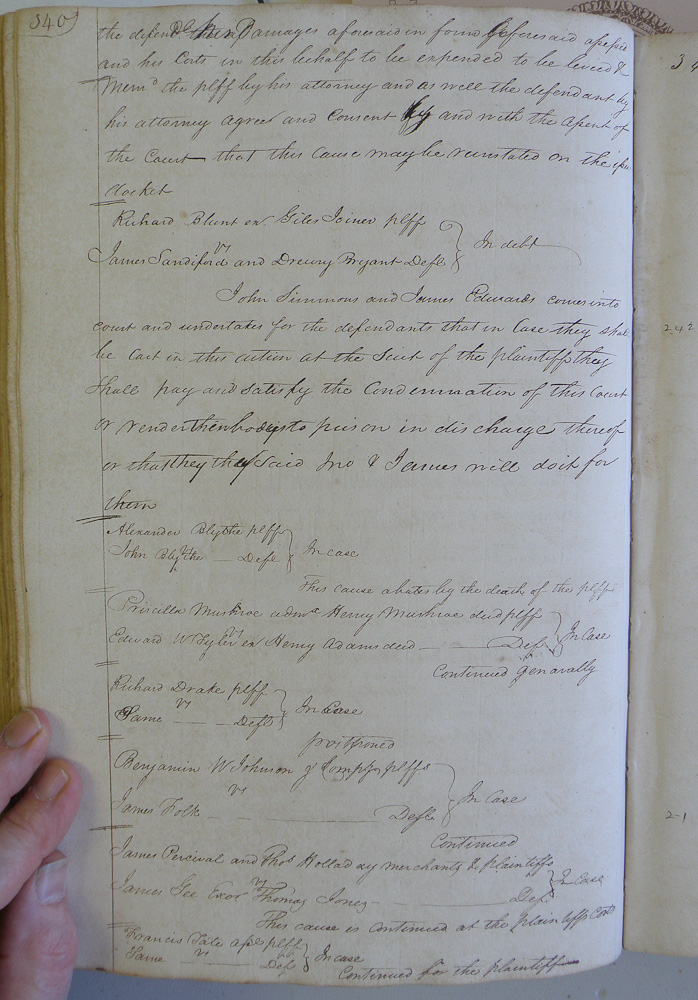 340
the defend Damages aforesaid in form aforesaid assessed
and his Costs in this behalf to be expended to be levied &
Memd the plff by his attorney and as well the defendant by
his attorney agree and consent and with the assent of
the Court that this cause may be reinstated on the
docket
Richard Blunt exr Giles Joiner plff
vs
In debt
James Sandiford and Drewry Bryant Defts
John Simmons and James Edwards comes into
court and undertakes for the defendants that in Case they shall
be Cast in this action at the Suit of the plaintiff they
Shall pay and satisfy the Condemnation of this Court
or render their bodys to prison in discharge thereof
or that they the said Jno & James will do it for
them
Alexander Blythe plff
vs
In case
John Blythe Deft
This cause abates by the death of the plff
Priscilla admx Henry decd plff
vs
In Case
Edward W Tyler ex Henry Adams decd Deft
Continued generally
Richard Drake plff
vs
In Case
Same Deft
postponed
Benjamin W Johnson & Comps plffs
vs
In Case
James Folk Deft
Continued
James Percival and Thos Holladay merchants & plaintiffs
vs
In Case
James Gee Exor Thomas Jones Def
This cause is continued at the plaintiffs Costs
Francis Tate plff
vs
In case
Same Def
Continued for the plaintiff
34
242
2-1